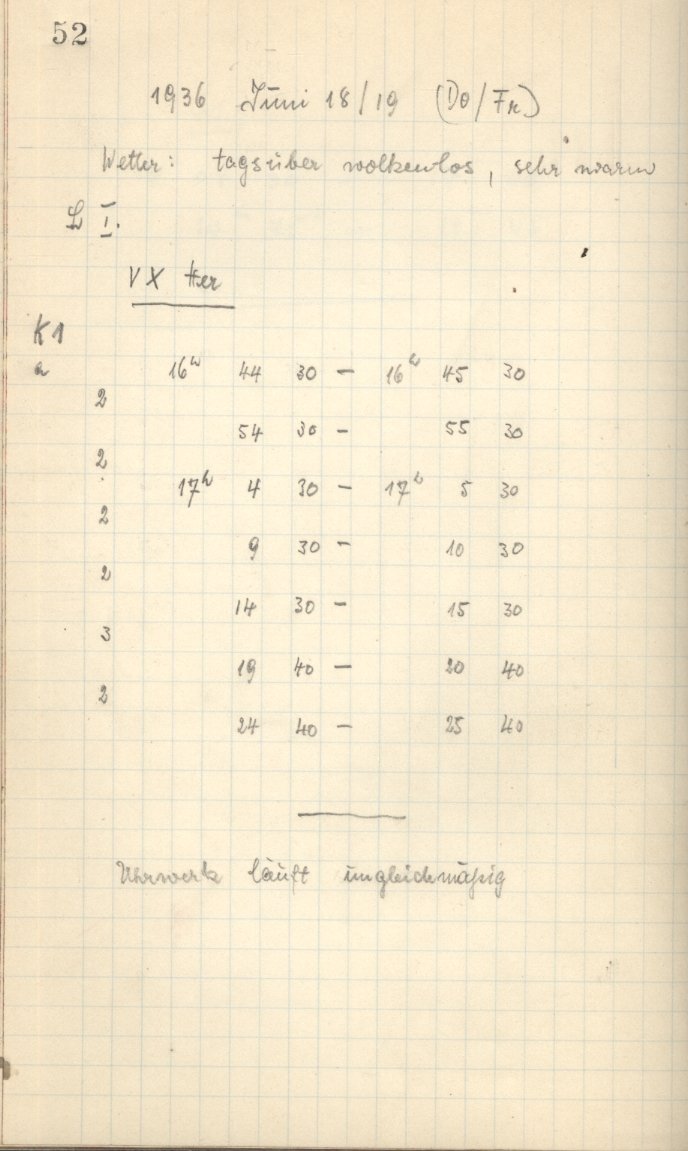 52
1936 Juni 18/19 (Do/Fr)
Wetter: tagsüber wolkenlos, sehr warm
L I.
VX Her
K1
a 16h 44 30 — 16h 45 30
2
54 30 — 55 30
2
17h 4 30 — 17h 5 30
2
9 30 — 10 30
2
14 30 — 15 30
3
19 40 — 20 40
2
24 40 — 25 40
Uhrwerk läuft ungleichmäßig